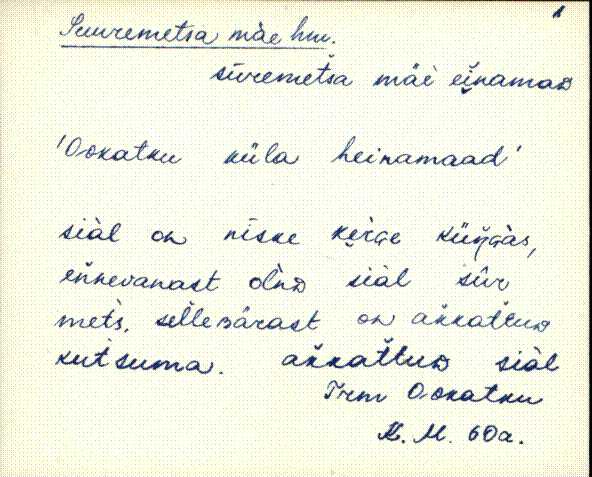 Suuremetsa mäe hm.
sūremetsa mäe einamaᴅ
'Ookatku küla heinamaad'
siàl on niske kèrɢe küŋɢàs,
ennevanast olnᴅ siàl sūr
mets. selleʙärast on akkattuᴅ
kutsuma. akkattuᴅ siàl
Trm Ookatku
K. M. 60a.